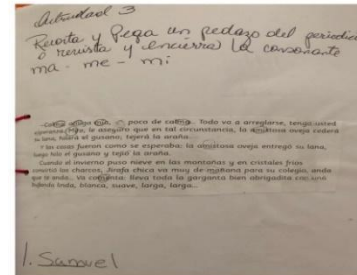 Actividad 3
Recorta y Pega un pedazo del periodico
o revista y encierra la consonante
ma - me - mi
poca de calma. Todo va a arreglarse, tenga usted
le aseguro que en tal circunstancia, la amistosa oveja cederá
su lana, hilará el gusano, tejerá la araña.
Y las cosas fueron como se esperaba: la amistosa oveja entregó su lana,
luego hiló el gusano y tejió la araña.
Cuando el invierno puso nieve en las montañas y en cristales fríos
convirtió los charcos, Jirafa chica va muy de mañana para su colegio, anda
que te anda... Va contenta: lleva toda la garganta bien abrigadita con una
bufanda linda, blanca, suave, larga, larga...
1. Samuel